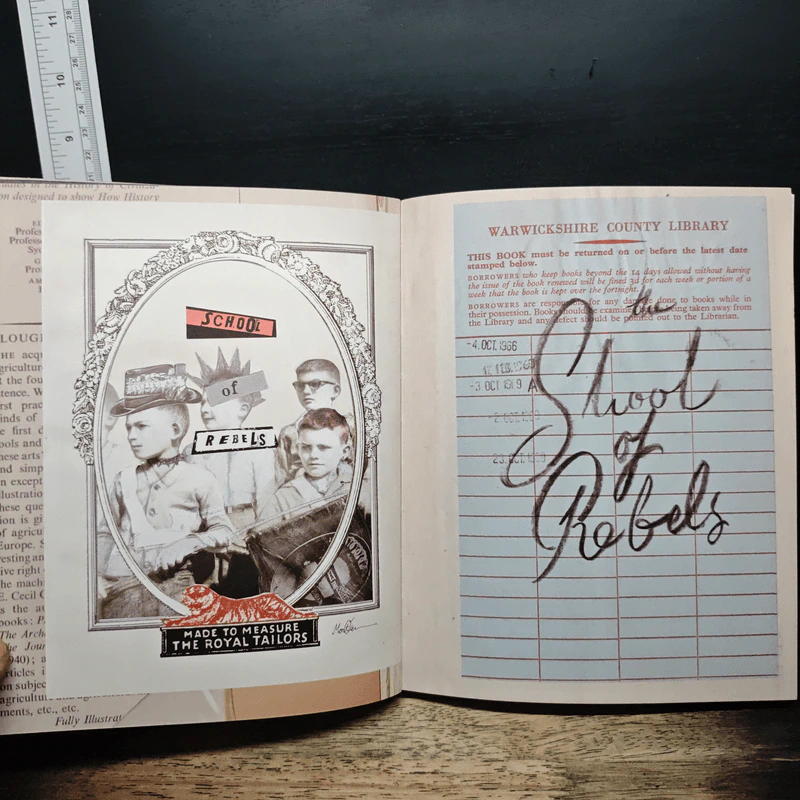 11
10
9
28
27
26
25
24
23
22
21
on designed to show How History
Profess
Profess
Syd
G
Pro
LOUGH
HE acqu
agriculture
t the foun
tence. W
rst pract
inds of
e first d
ools and
ese arts'
and simp
n except
llustration
hese que
ion is giv
of agricu
Europe. S
esting and
ive right
the mach
E. Cecil C
is the au
books: P
The Arch
the Jour
940); a
articles i
on subject
agriculture and
ments, etc., etc.
Fully Illustrat
SCHOOL
of
REBELS
MADE TO MEASURE
THE ROYAL TAILORS
WARWICKSHIRE COUNTY LIBRARY
THIS BOOK must be returned on or before the latest date
stamped below.
BORROWERS who keep books beyond the 14 days allowed without having
the issue of the book renewed will be fined 3d for each week or portion of a
week that the book is kept over the fortnight.
BORROWERS are responsible for any damage done to books while in
their possession. Books should be examined before being taken away from
the Library and any defect should be pointed out to the Librarian.
-4. OCT. 1966
-3 OCT 1969 A
the
School
of
Rebels